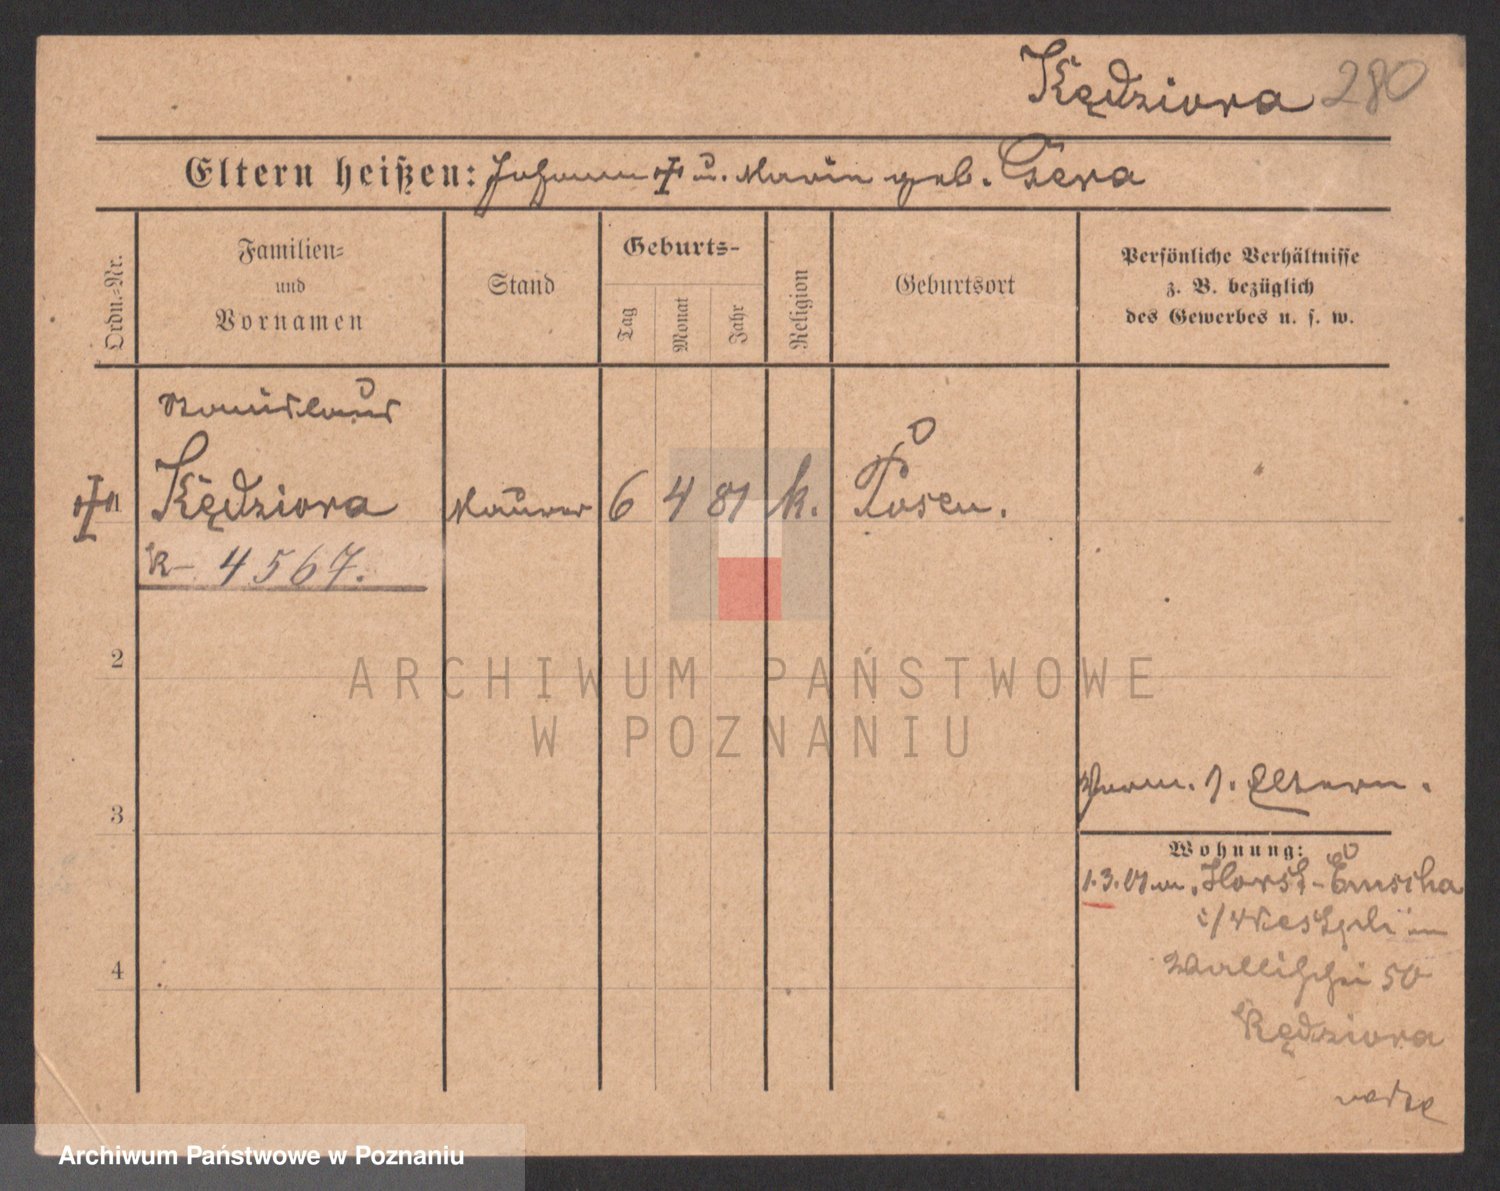 Kędziora 280
Eltern heißen: Johann u. Marie geb. Gera
Ordn.-Nr.
Familien- und Vornamen
Stand
Geburts-
Tag
Monat
Jahr
Religion
Geburtsort
Persönliche Verhältnisse
z. B. bezüglich
des Gewerbes u. s. w.
Stanislaus
1 Kędziora Maurer 6 4 81 k. Posen.
K- 4567.
2
ARCHIWUM PAŃSTWOWE
W POZNANIU
3
Eltern.
Wohnung:
1.3.01 Horst-Emscha
i/Westph
Wallischei 50
Kędziora
4
Archiwum Państwowe w Poznaniu